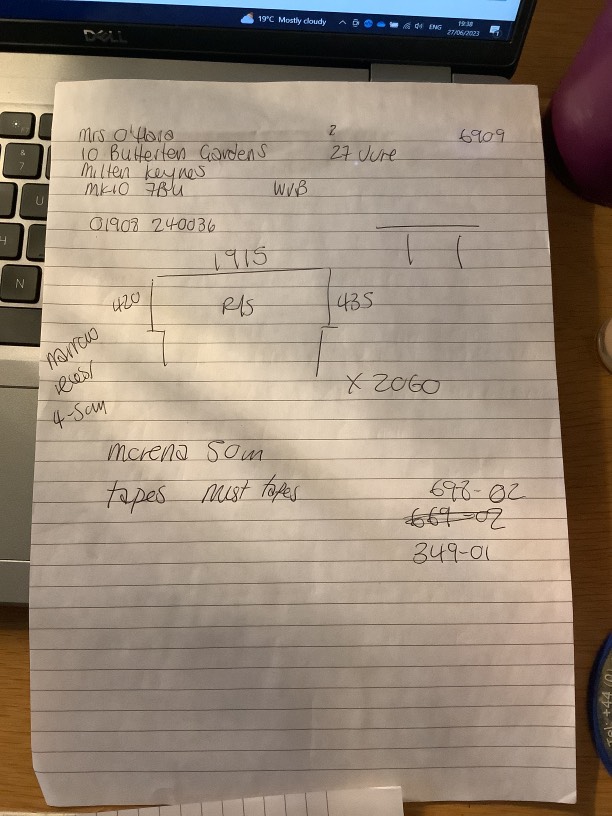 19°C Mostly cloudy
ENG
19:38
27/06/2023
DELL
Mrs O'Hara 2 6909
10 Butterten Gardens 27 June
Milten Keynes
MK10 7BU WVB
01908 240036
1915
420 R/S 435
narrow
recess
4-5cm
X 2060
morena 50m
tapes mist tapes
698-02
669-02
349-01
&
7
U
H
N
Tel: +44 (0)